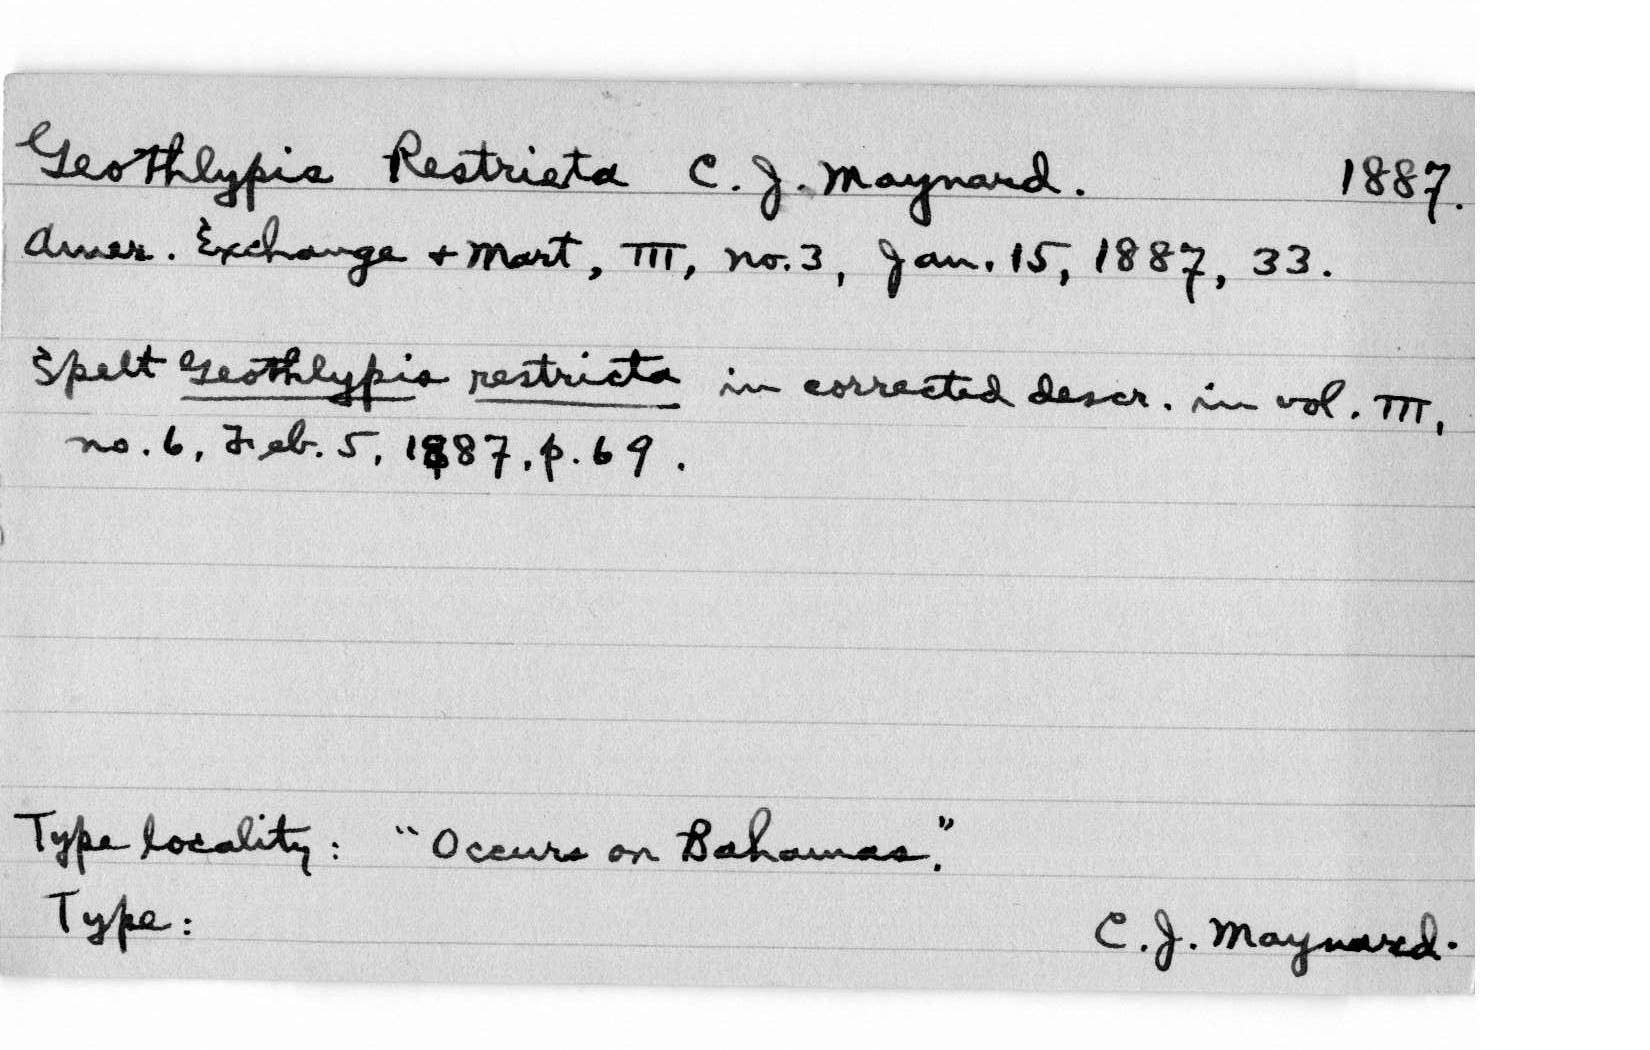 Geothlypis Restrieta C. J. Maynard. 1887.
Amer. Exchange + Mart, III, no. 3, Jan. 15, 1887, 33.
Spelt Geothlypis restricta in corrected descr. in vol. III,
no. 6, Feb. 5, 1887, p. 69.
Type locality: "Occurs on Bahamas."
Type: C. J. Maynard.